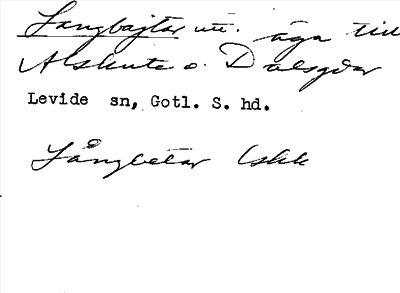 Langbajtar utt. äga till
Alskute o. Dalsgdar
Levide sn, Gotl. S. hd.
Långbetar